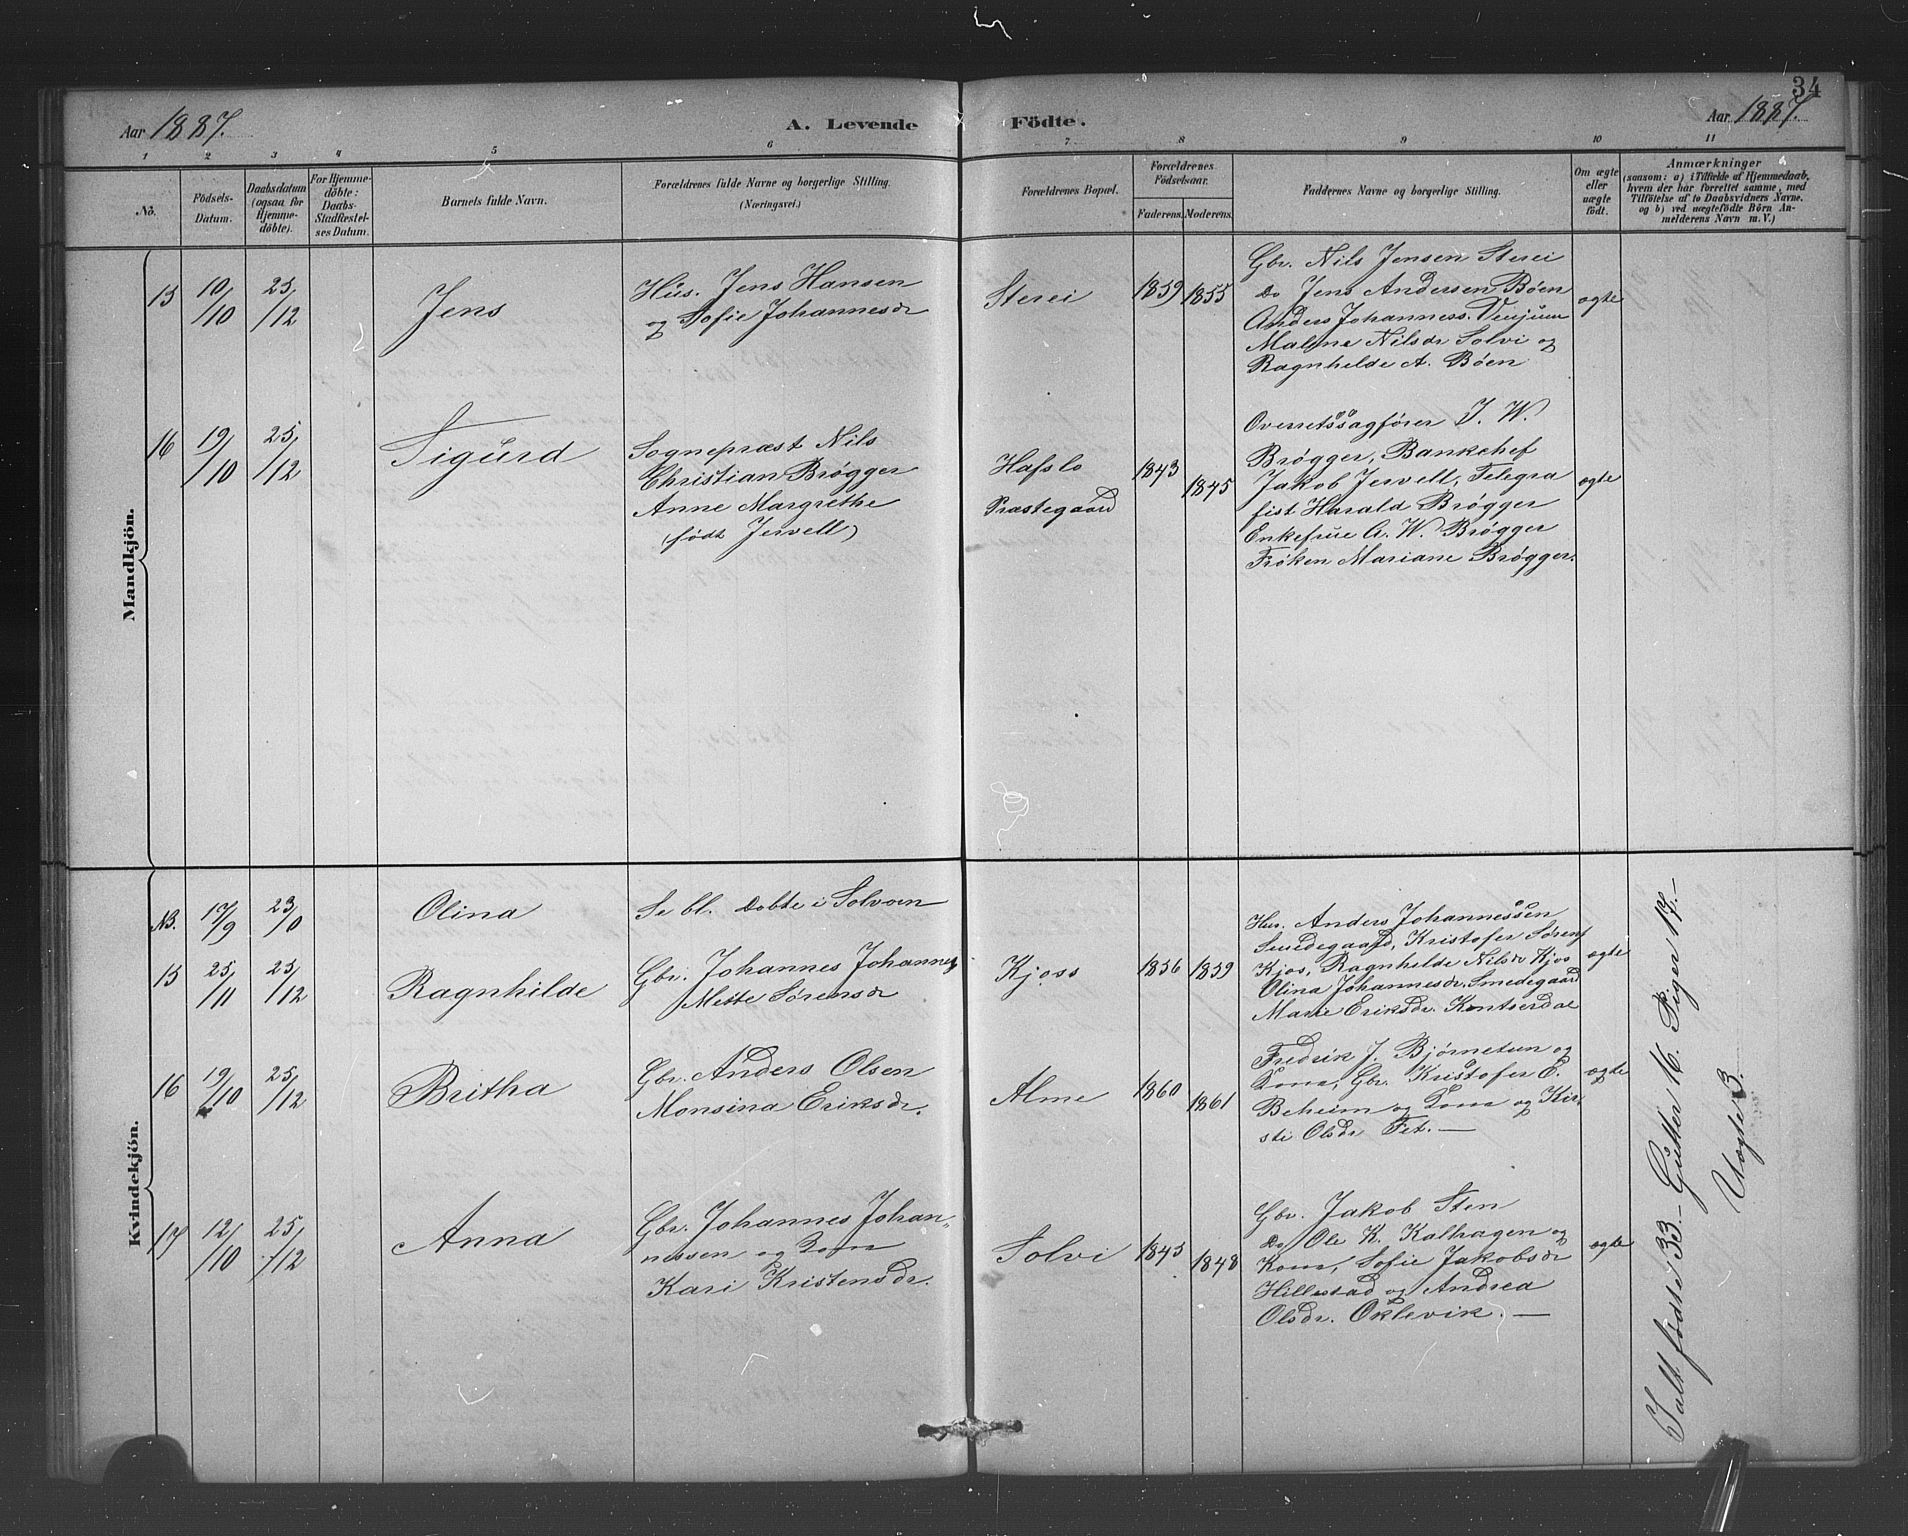 34
Aar 1887.
A. Levende Födte.
Aar 1887.
1 2 3 4 5 6 7 8 9 10 11
No.
Födsels-
Datum.
Daabsdatum
(ogsaa for
Hjemme-
döbte).
For Hjemme-
döbte:
Daabs-
Stadfestel-
ses Datum.
Barnets fulde Navn.
Forældrenes fulde Navne og borgerlige Stilling.
(Næringsvei.)
Forældrenes Bopæl.
Forældrenes
Födselsaar.
Faderens. Moderens.
Faddernes Navne og borgerlige Stilling.
Om ægte
eller
uægte
födt.
Anmærkninger
(saasom: a) i Tilfælde af Hjemmedaab,
hvem der har forrettet samme, med
Tilföielse af to Daabsvidners Navne.
og b) ved uægtefödte Börn An-
melderens Navn m. V.)
Mandkjön.
15 10/10 25/12 Jens
Hus. Jens Hansen
og Sofie Johannesdr
Sterei 1859 1855
Gbr. Nils Jensen Sterei
Do Jens Andersen Bøen
Anders Johanness. Venjum
Malene Nilsdr Solvi og
Ragnhilde A. Bøen
ægte
16 19/10 25/12 Sigurd
Sognepræst Nils
Christian Brøgger
Anne Margrethe
(født Jervell)
Hafslo
Præstegaard
1843 1845
Overretssagfører J. W.
Brøgger, Bankchef
Jakob Jervell, Telegra
fist Harald Brøgger
Enkefrue A. W. Brøgger
Frøken Mariane Brøgger.
ægte
Kvindekjön.
NB. 17/9 23/10 Olina
Se bl. Døbte i Solvorn
15 25/11 25/12 Ragnhilde
Gbr. Johannes Johannes
Mette Sørensdr
Kjoss 1856 1859
Hus. Anders Johannessen
Smedegaard, Kristofer Sørens
Kjos, Ragnhilde Nilsdr Kjos
Olina Johannesdr. Smedegaard
Marie Eriksdr.
ægte
16 19/10 25/12 Britha
Gbr. Anders Olsen
Monsina Eriksdr.
Alme 1860 1861
Fredrik J. Bjørnetun og
Kona, Gbr. Kristofer E.
Beheim og Kona og Kir
sti Olsdr Fet. —
ægte
17 12/10 25/12 Anna
Gbr. Johannes Johan-
nessen og Kona
Kari Kristensdr.
Solvi 1845 1848
Gbr. Jakob Sten
Do Ole K. Kalhagen og
Kona, Sofie Jakobsdr
Hillestad og Andrea
Olsdr. Oklevik. —
ægte
Talt fødte 33. — Gutter 16. Piger 17. —
Uægte 3.